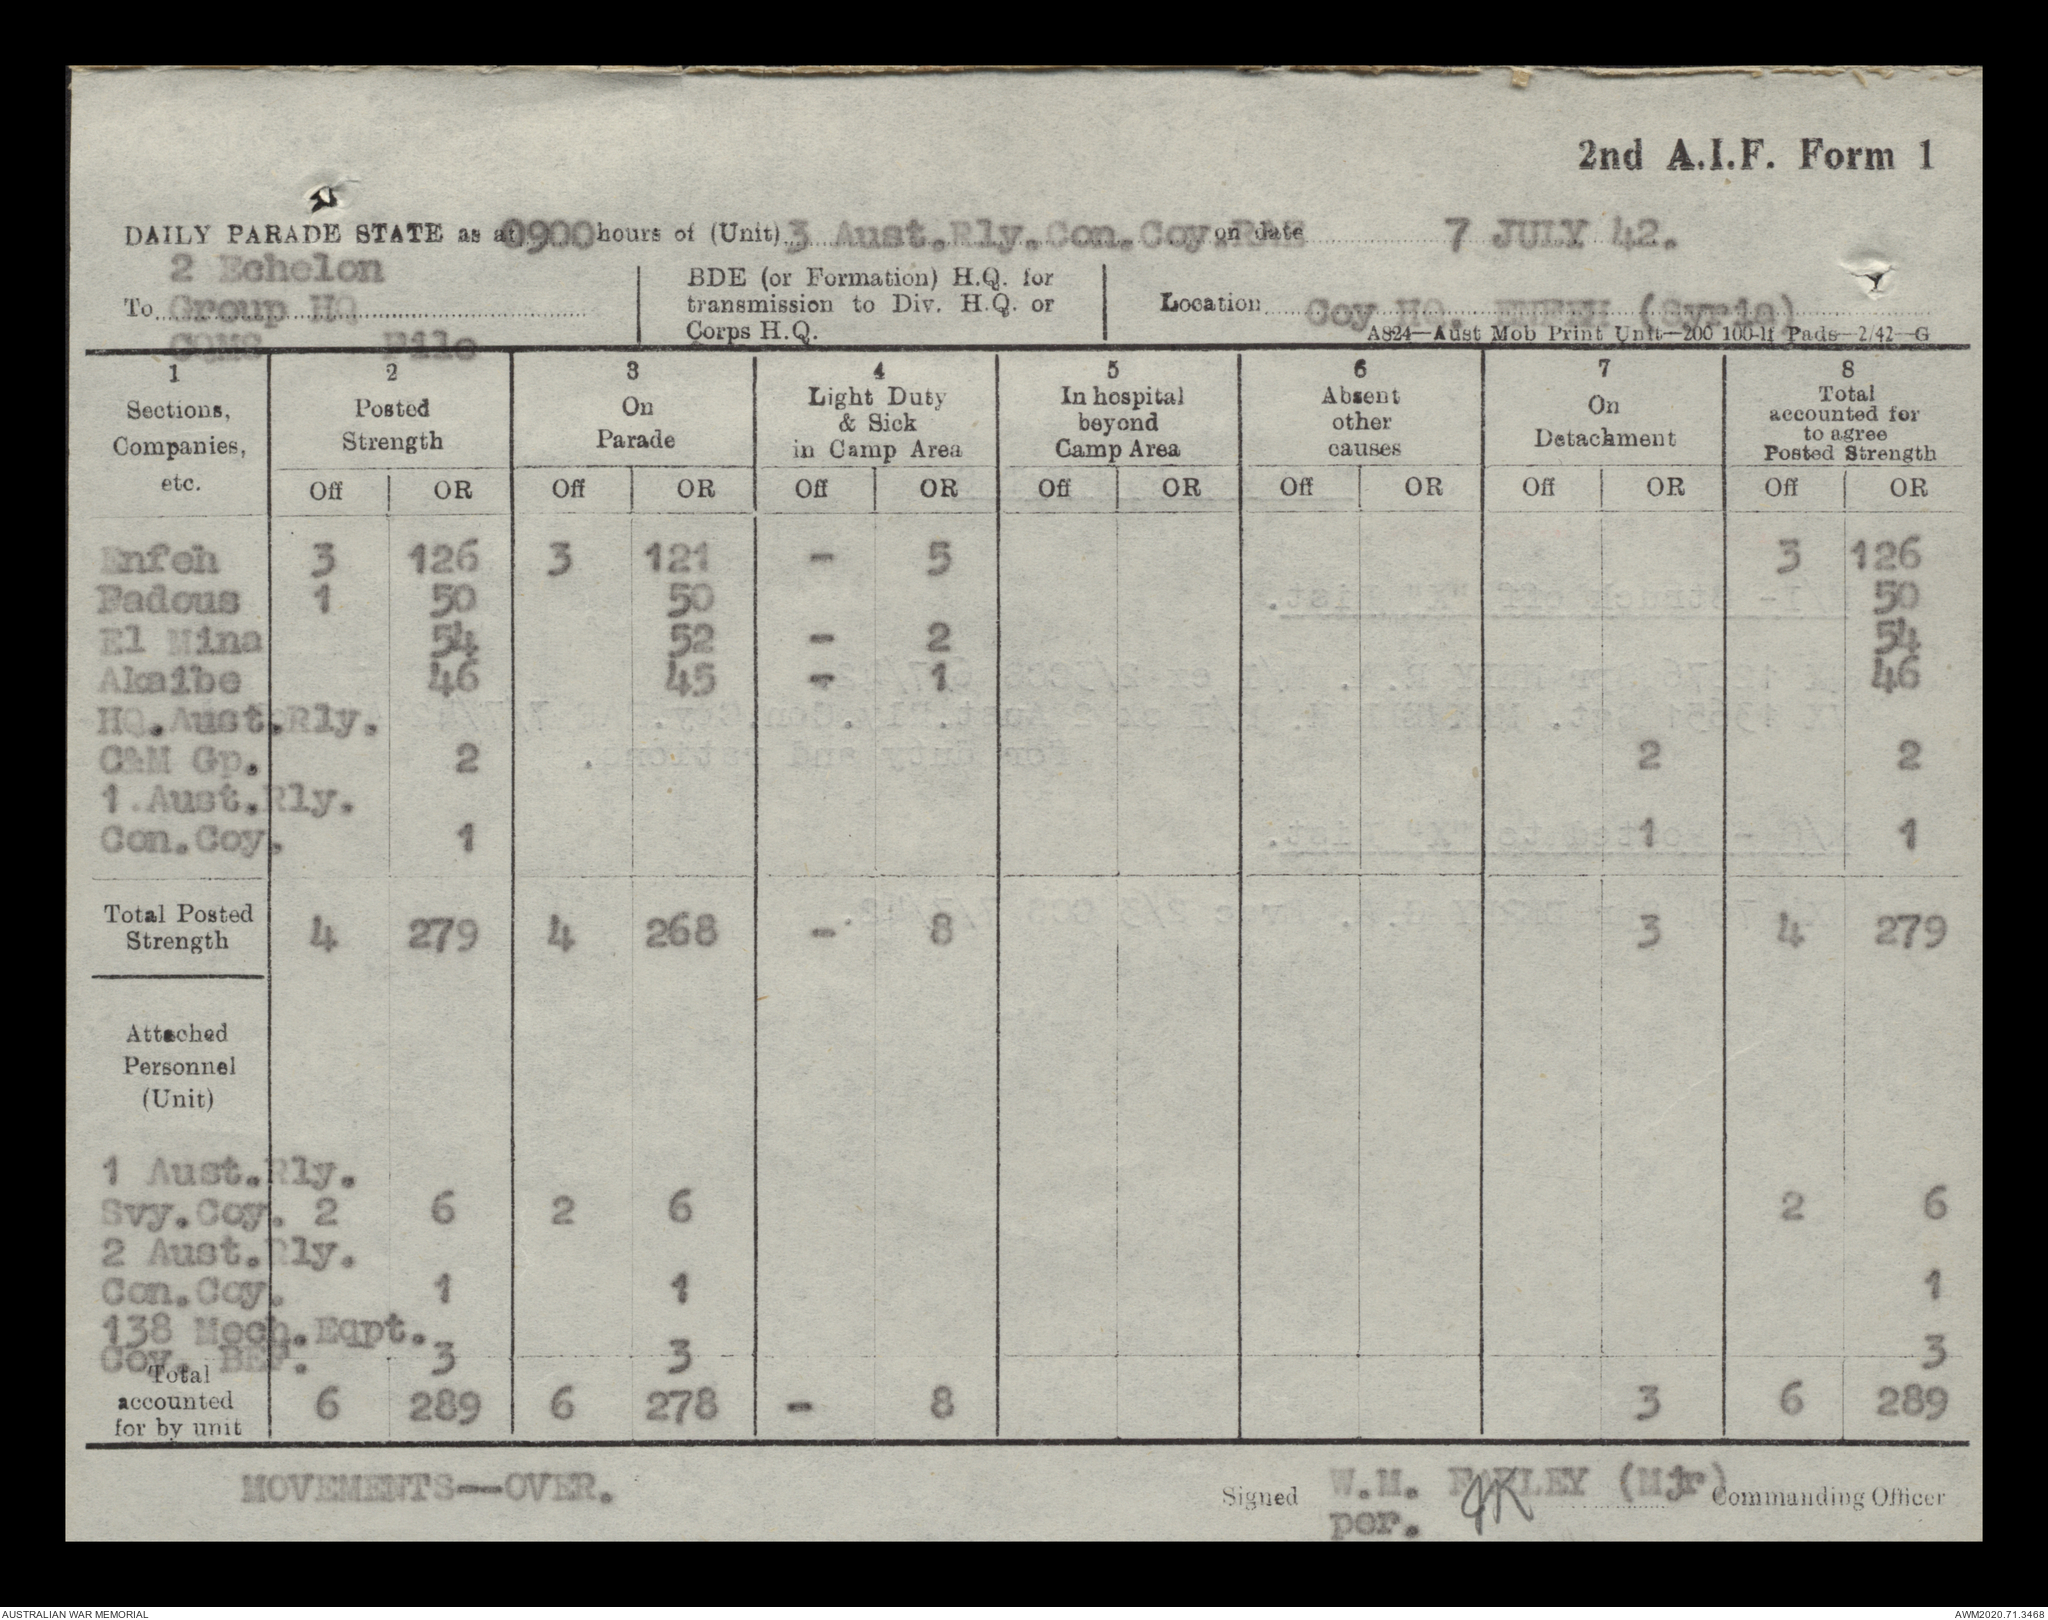 2nd A.I.F. Form 1
DAILY PARADE STATE as at 0900 hours of (Unit) 3 Aust.Rly.Con.Coy.RAE on date 7 JULY 42.
2 Echelon
To Group HQ
CQMS File
BDE (or Formation) H.Q. for
transmission to Div. H.Q. or
Corps H.Q.
Location Coy HQ. ENFEH (Syria)
A824—Aust Mob Print Unit—200 100-lf Pads—2/42—G
1 2 3 4 5 6 7 8
Sections, Companies, etc.
Posted Strength
On Parade
Light Duty & Sick in Camp Area
In hospital beyond Camp Area
Absent other causes
On Detachment
Total accounted for to agree Posted Strength
Off OR Off OR Off OR Off OR Off OR Off OR Off OR
Enfeh 3 126 3 121 - 5 3 126
Fadous 1 50 50 50
El Mina 54 52 - 2 54
Akaibe 46 45 - 1 46
HQ.Aust.Rly.
C&M Gp. 2 2 2
1.Aust.Rly.
Con.Coy. 1 1 1
Total Posted Strength 4 279 4 268 - 8 3 4 279
Attached
Personnel
(Unit)
1 Aust.Rly.
Svy.Coy. 2 6 2 6 2 6
2 Aust.Rly.
Con.Coy. 1 1 1
138 Mech.Eqpt.
Coy. BEF. 3 3 3
Total accounted for by unit 6 289 6 278 - 8 3 6 289
MOVEMENTS--OVER.
Signed W.M. FARLEY (Mjr) Commanding Officer
per.
AUSTRALIAN WAR MEMORIAL
AWM2020.71.3468